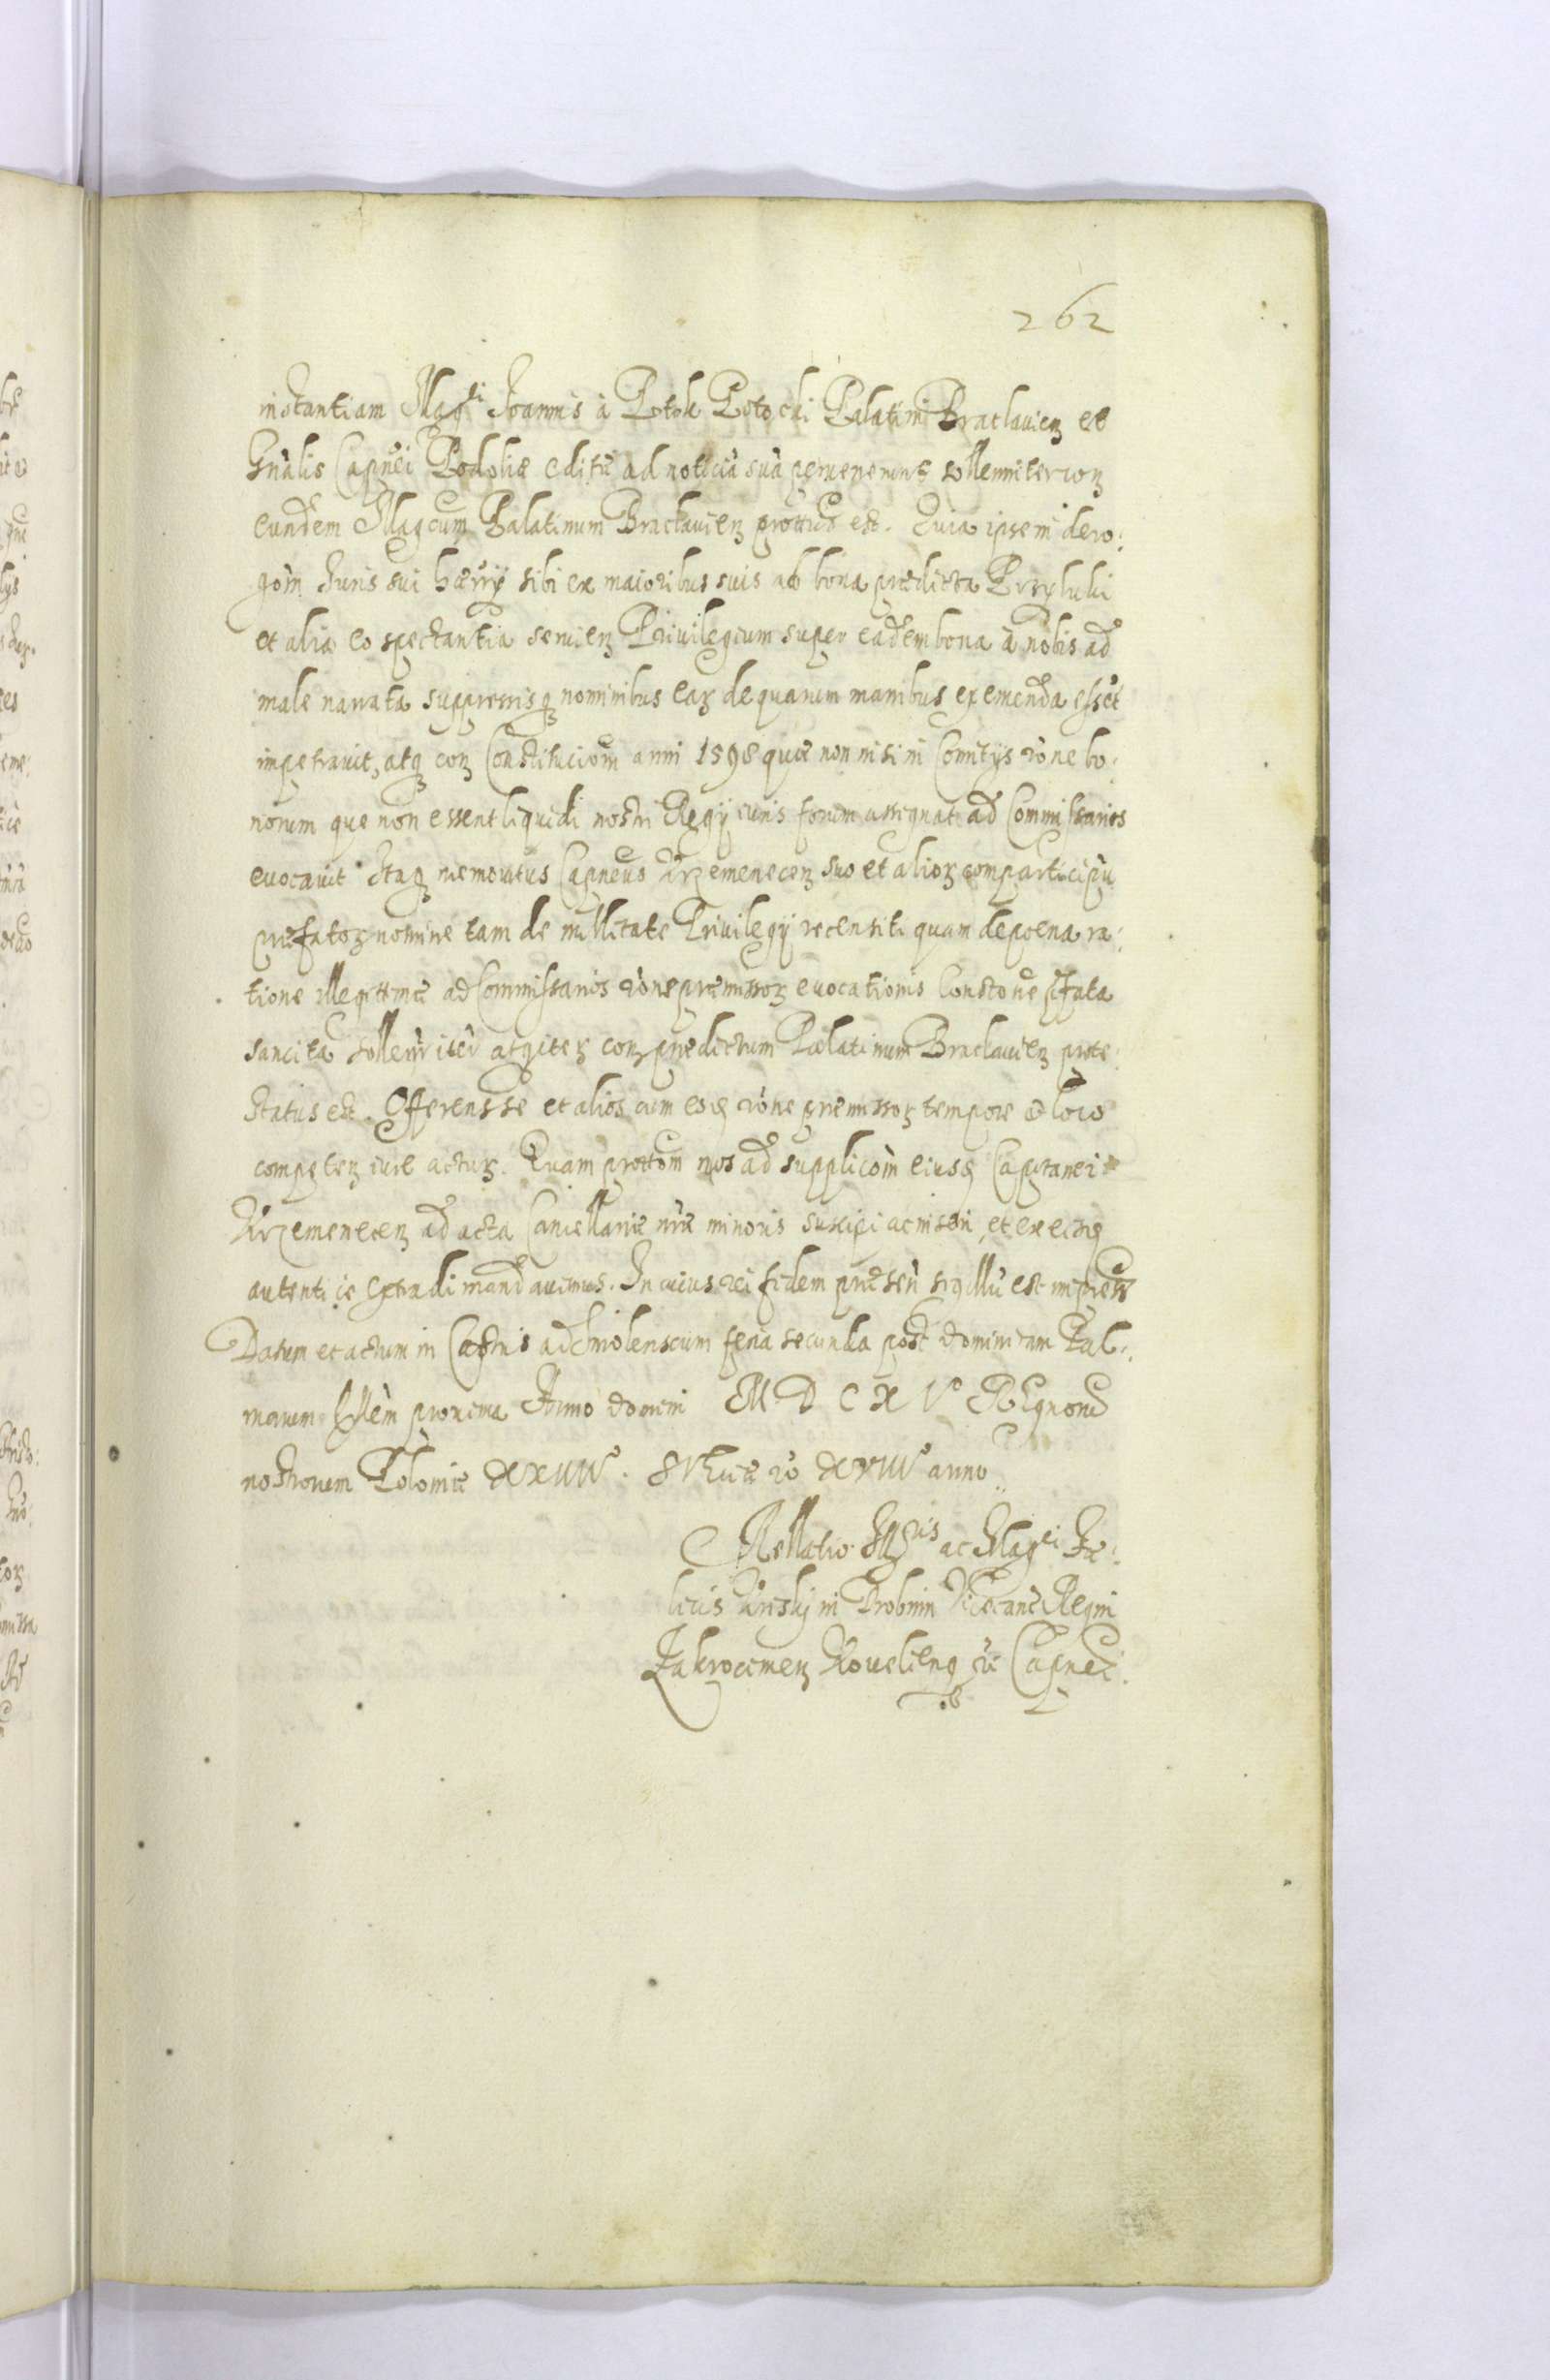 262
instantiam Mag^ci Joannis à Potok Potocki Palatini Braclavien et
Gnàlis Capnei Podoliæ editū ad noticiā suā pervenerunt sollenniter con
eundem Magcum Palatinum Braclavien prottus est. Quia ipse in dero:
gòm Juris sui hærrÿ sibi ex maioribus suis ad bona prædicta
et alia eo spectantia servien Privilegium super eadem bona à nobis ad
male narrata suppressisq nominibus ear de quarum manibus eximenda esset
impetravit, atq con Constituciom anni 1598 quæ non nisi in Comitÿs ròne bo:
norum que non essent liquidi nostri Regÿ iuris forum assignat ad Commissarios
evocavit Itaq memoratus Capneus Krzemenecen suo et alior comparticipū
præfator nomine tam de nullitate Privilegÿ recensiti quam de poena ra:
tione illegittimæ ad Commissarios ròne præmissor evocationis Constone pfata
sancita sollenniter con prædictum Palatinum Braclavien prote:
status est. Offerens se et alios cum eo ròne præmissor tempore et loco
competen iure actur. Quam prottom nos ad supplicòm eiusd Capitanei
Krzemenecen ad acta Cancellariæ nræ minoris suscipi ac inseri, et ex eisd
autentice extradi mandavimus. In cuius rei fidem præsen sigillū est impress
Datum et actum in Castris ad Smolenscum feria secunda post Dominicam Pal:
marum proxima Anno Domini M D C X I Regnorū
nostrorum Poloniæ XXIIII°. Sveciæ vo XVIII° anno
Rellatio Ill^ris ac Mag^ci Fe:
licis Kriski in Drobnin Vicecanc Regni
Zakrocimen Capnei